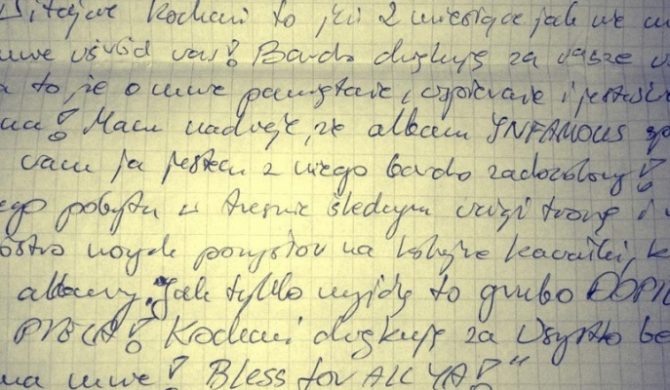 Witajcie Kochani to już 2 miesiące jak nie m
mnie wśród was! Bardo dziękuję za wasze
a to, że o mnie pamiętacie, wspieracie i jesteście
na! Mam nadzieję, że album INFAMOUS
wam ja jestem z niego bardo zadowolony!
ego pobytu w areszcie śledczym
ostro nowych pomysłów na kolejne kawałki, k
albumy. Jak tylko wyjdę to grubo DOPIE
Kochani dziękuję za wszystko
na mnie! Bless for ALL YA!"